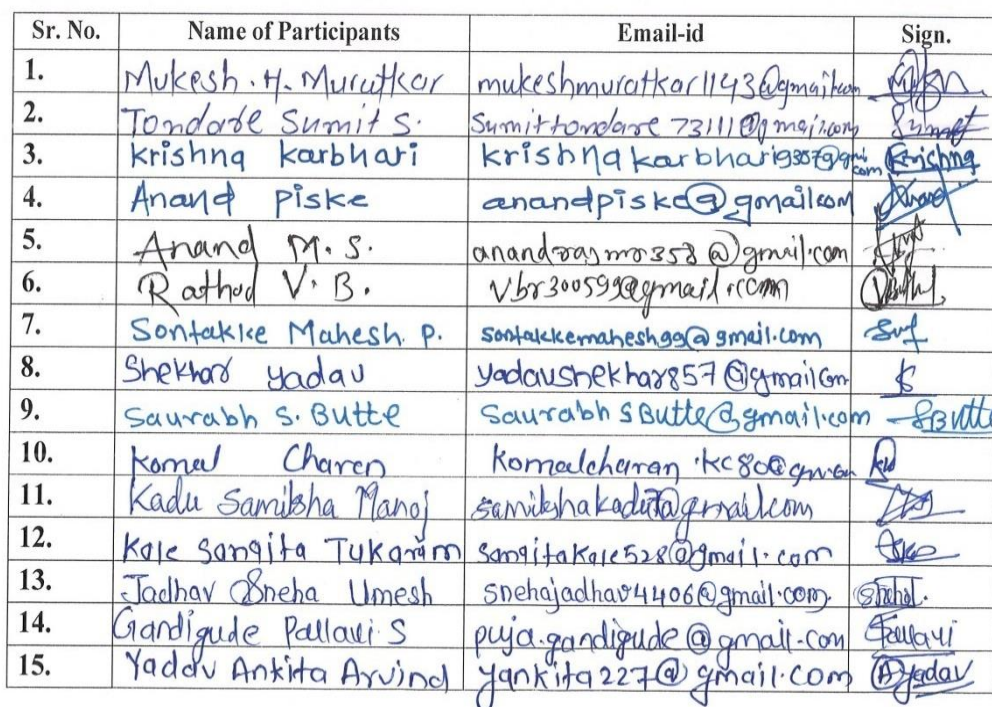 Sr. No. Name of Participants Email-id Sign.
1. Mukesh. H. Muratkar mukeshmuratkar1143@gmail.com
2. Tondare Sumit S. Sumittondare73111@gmail.com Sumit
3. Krishna karbhari krishnakarbhari9307@gmail.com Krishna
4. Anand Piske anandpiske@gmail.com Anand
5. Anand M. S. anandrajmr358@gmail.com
6. Rathod V. B. Vbr300599@gmail.com
7. Sontakke Mahesh. P. sontakkemahesh99@gmail.com
8. Shekhar yadav yadavshekhar857@gmail.com
9. Saurabh S. Butte SaurabhSButte@gmail.com SButte
10. Komal Charan Komalcharan.kc80@gmail.com
11. Kadu Samiksha Manoj samikshakadu7@gmail.com
12. Kale Sangita Tukaram sangitakale528@gmail.com
13. Jadhav Sneha Umesh snehajadhav4406@gmail.com.
14. Gandigude Pallavi S puja.gandigude@gmail.com Pallavi
15. Yadav Ankita Arvind yankita227@gmail.com AYadav